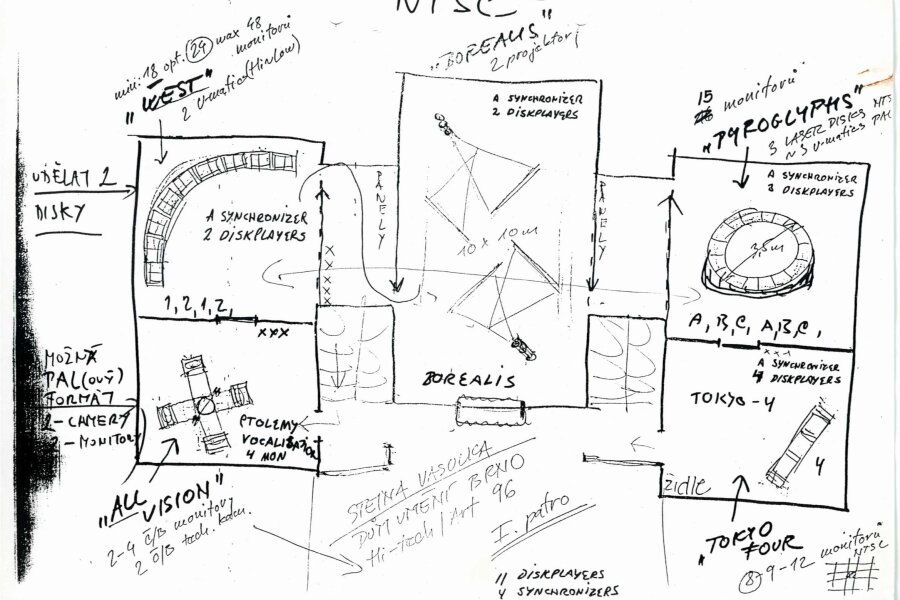 NTSC
min. 18 opt. 24 max 48 monitorů
"WEST"
2 U-matic (Hi n Low)
"BOREALIS"
2 projektory
A SYNCHRONIZER
2 DISKPLAYERS
15 monitorů
"PYROGLYPHS"
3 LASER DISKS NTS
3 U-matics PAL
A SYNCHRONIZER
3 DISKPLAYERS
UDĚLAT 2
DISKY
A SYNCHRONIZER
2 DISKPLAYERS
PANELY
PANELY
10 x 10 m
3,5m
XXXX
1, 2, 1, 2,
XXX
A, B, C, A, B, C,
XXX
MOŽNÁ
PAL(OVÝ)
FORMÁT
2-CAMERY
2-MONITORY
PTOLEMY
VOCALISATION
4 MON
BOREALIS
A SYNCHRONIZER
4 DISKPLAYERS
TOKYO - 4
4
ŽIDLE
"ALL VISION"
2-4 Č/B monitory
2 Č/B tach. kam.
STEINA VASULKA
DŮM UMĚNÍ BRNO
Hi-tech / Art 96
I. patro
"TOKYO
FOUR
8-9-12 monitorů
NTSC
11 DISKPLAYERS
4 SYNCHRONIZERS